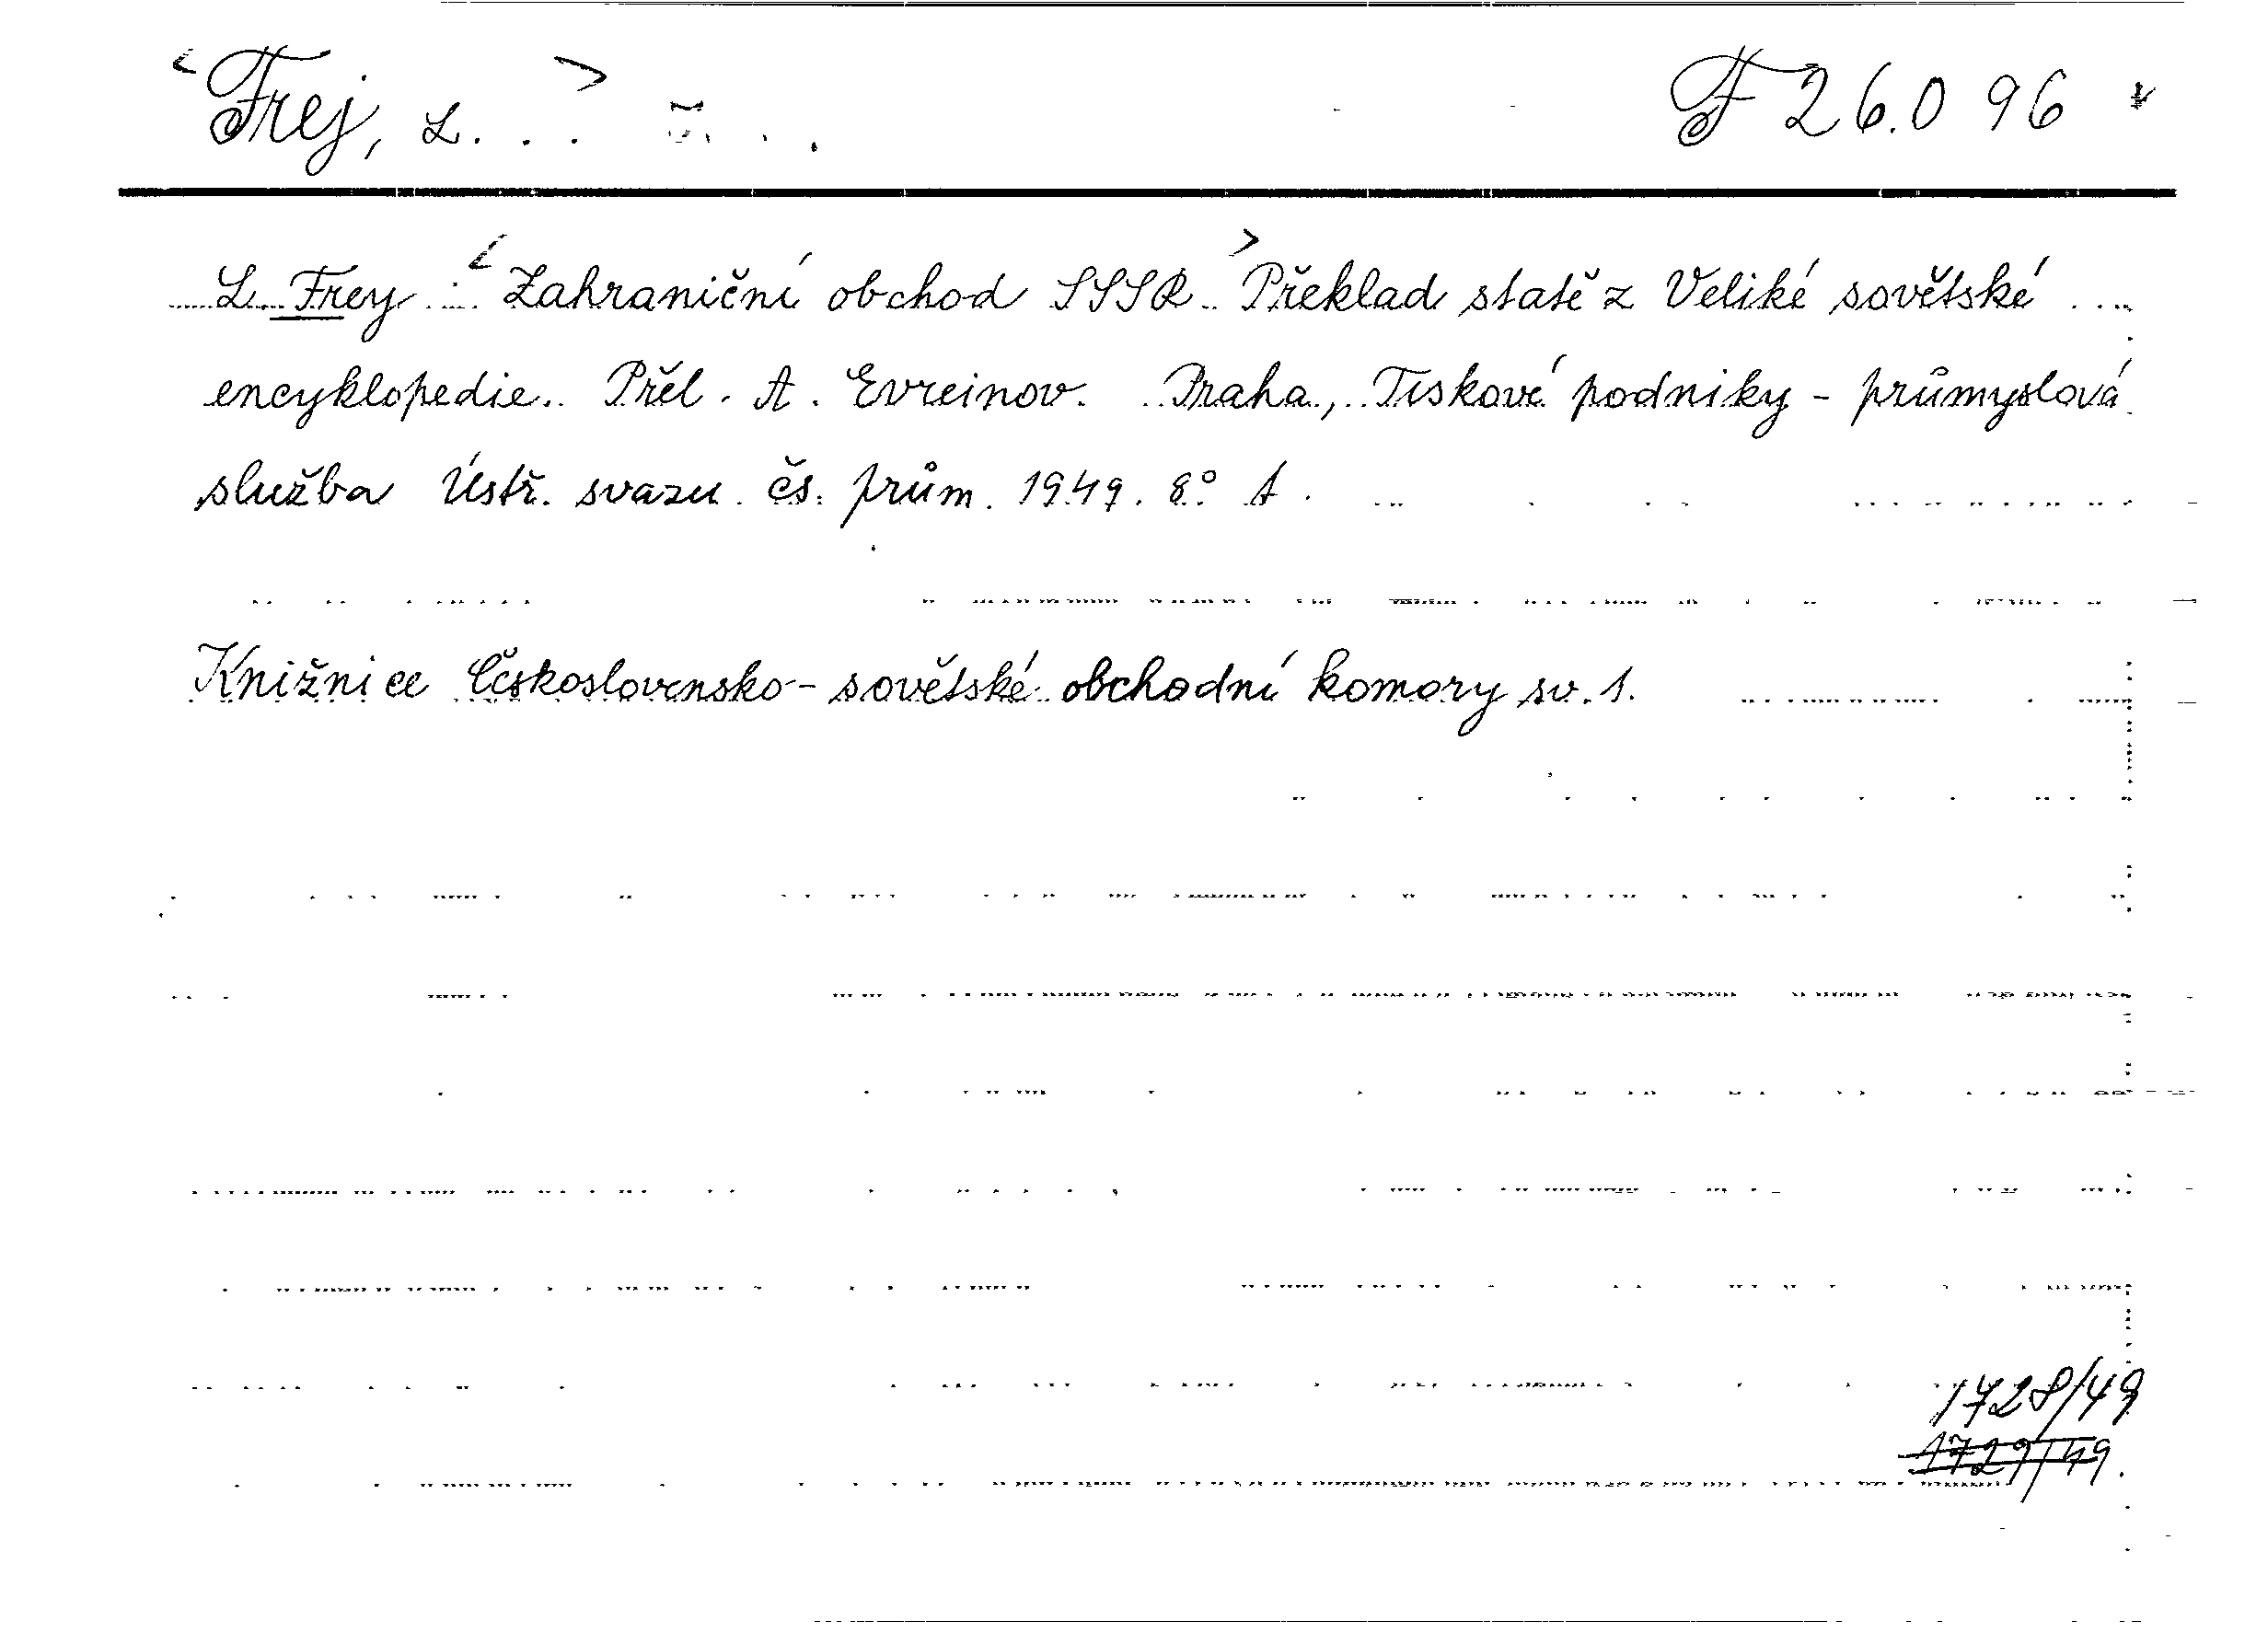 <Frej, L...> F 26.096
L. Frey: <Zahraniční obchod SSSR.> Překlad statě z Veliké sovětské
encyklopedie. Přel. A. Evreinov. Praha, Tiskové podniky - průmyslová
služba Ústř. svazu čs. prům. 1949. 8° A.
Knižnice Československo-sovětské obchodní komory sv. 1.
1728/49
1729/49.